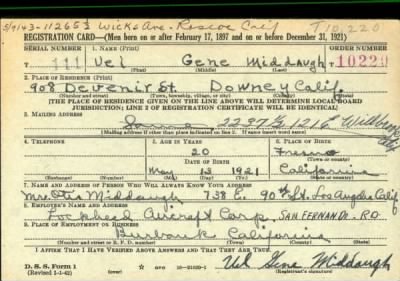 5/9/43-11265½ Wicks Ave- Roscoe Calif T10,220
REGISTRATION CARD—(Men born on or after February 17, 1897 and on or before December 31, 1921)
SERIAL NUMBER 1. NAME (Print) ORDER NUMBER
T 111 Vel Gene Middaugh 10220
(First) (Middle) (Last)
2. PLACE OF RESIDENCE (Print)
908 Devenir St. Downey Calif
(Number and street) (Town, township, village, or city) (County) (State)
[THE PLACE OF RESIDENCE GIVEN ON THE LINE ABOVE WILL DETERMINE LOCAL BOARD
JURISDICTION; LINE 2 OF REGISTRATION CERTIFICATE WILL BE IDENTICAL]
3. MAILING ADDRESS
Same
[Mailing address if other than place indicated on line 2. If same insert word same]
4. TELEPHONE 5. AGE IN YEARS 6. PLACE OF BIRTH
20 Fresno
DATE OF BIRTH (Town or county)
May 13 1921 California
(Exchange) (Number) (Mo.) (Day) (Yr.) (State or country)
7. NAME AND ADDRESS OF PERSON WHO WILL ALWAYS KNOW YOUR ADDRESS
Mrs. Otis Middaugh 738 E. 90th St. Los Angeles Calif
8. EMPLOYER'S NAME AND ADDRESS
Lockheed Aircraft Corp. SAN FERNANDO RD
9. PLACE OF EMPLOYMENT OR BUSINESS
Burbank California
(Number and street or R. F. D. number) (Town) (County) (State)
I AFFIRM THAT I HAVE VERIFIED ABOVE ANSWERS AND THAT THEY ARE TRUE.
D. S. S. Form 1
(Revised 1-1-42) (over) Vel Gene Middaugh
(Registrant's signature)